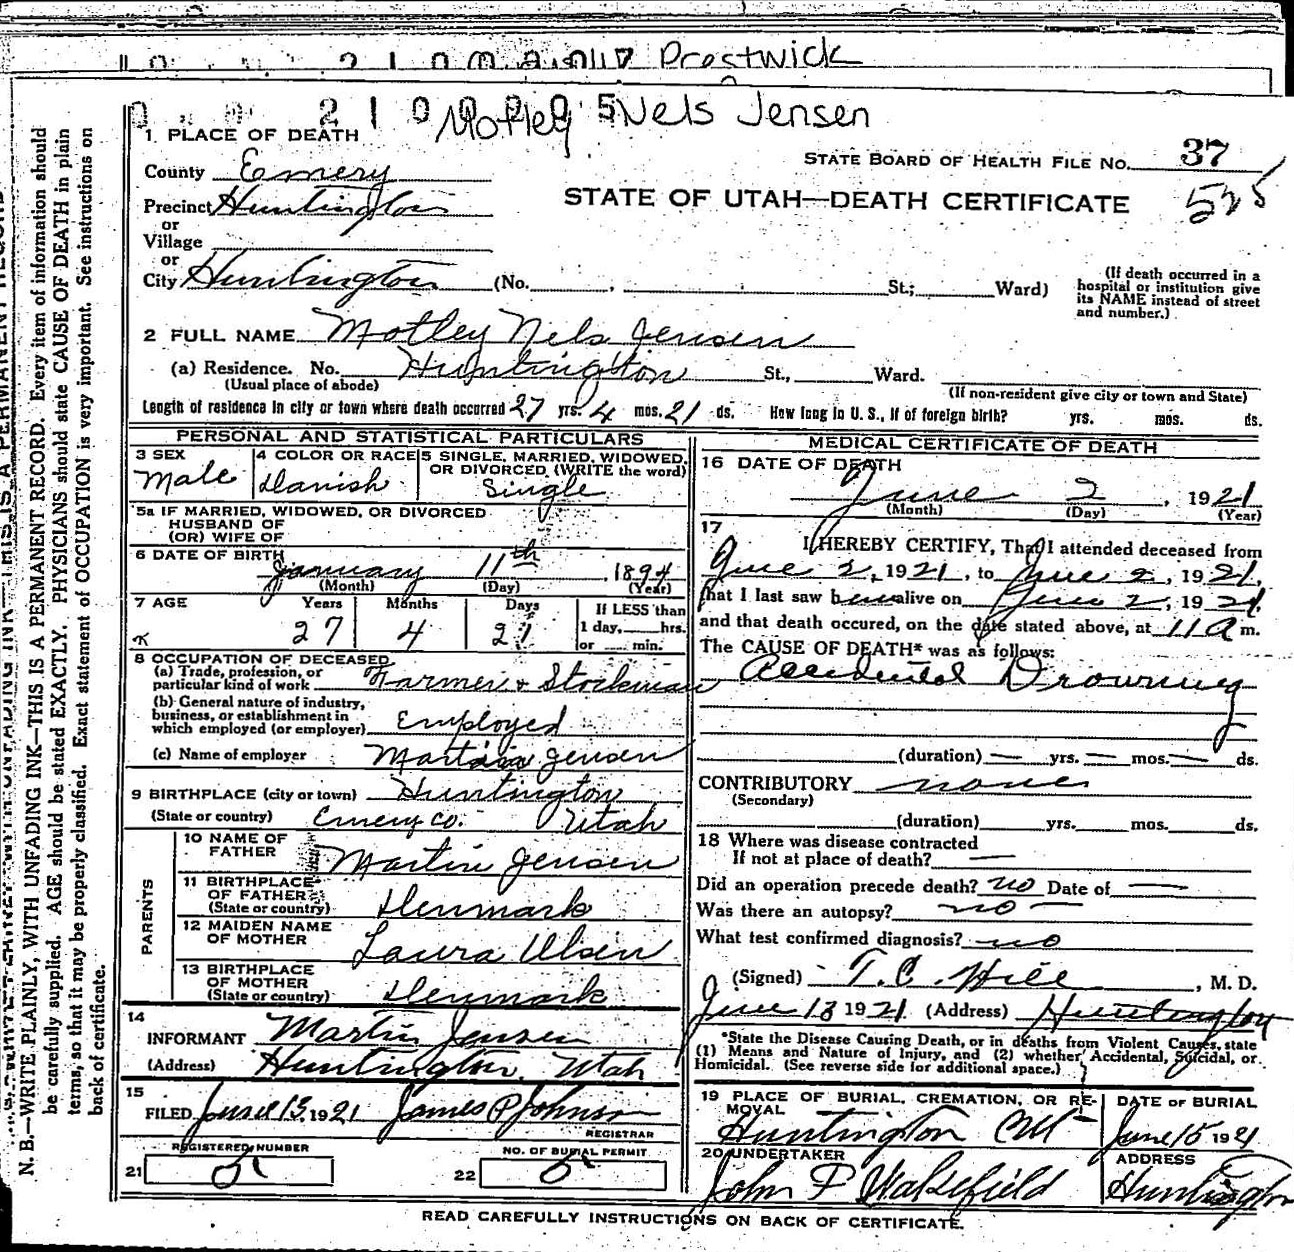 Prestwick
Motley Nels Jensen
1 PLACE OF DEATH
STATE BOARD OF HEALTH FILE NO. 37
525
County Emery
STATE OF UTAH—DEATH CERTIFICATE
Precinct Huntington
or
Village
or
City Huntington (No. , St.; Ward)
(If death occurred in a hospital or institution give its NAME instead of street and number.)
2 FULL NAME Motley Nels Jensen
(a) Residence. No. Huntington St., Ward.
(Usual place of abode)
(If non-resident give city or town and State)
Length of residence in city or town where death occurred 27 yrs. 4 mos. 21 ds. How long in U. S., if of foreign birth? yrs. mos. ds.
PERSONAL AND STATISTICAL PARTICULARS
3 SEX
Male
4 COLOR OR RACE
Danish
5 SINGLE, MARRIED, WIDOWED, OR DIVORCED (WRITE the word)
Single
5a IF MARRIED, WIDOWED, OR DIVORCED
HUSBAND OF
(OR) WIFE OF
6 DATE OF BIRTH
January 11th, 1894
(Month) (Day) (Year)
7 AGE Years Months Days
27 4 21
If LESS than
1 day, hrs.
or min.
8 OCCUPATION OF DECEASED
(a) Trade, profession, or
particular kind of work Farmer + Stockman
(b) General nature of industry,
business, or establishment in
which employed (or employer) Employed
(c) Name of employer Martin Jensen
9 BIRTHPLACE (city or town) Huntington
(State or country) Emery Co. Utah
PARENTS
10 NAME OF
FATHER Martin Jensen
11 BIRTHPLACE
OF FATHER
(State or country) Denmark
12 MAIDEN NAME
OF MOTHER Laura Olsen
13 BIRTHPLACE
OF MOTHER
(State or country) Denmark
14
INFORMANT Martin Jensen
(Address) Huntington, Utah
15
FILED June 13, 1921 James P Johnson
REGISTRAR
REGISTERED NUMBER
21 5
NO. OF BURIAL PERMIT
22 5
MEDICAL CERTIFICATE OF DEATH
16 DATE OF DEATH
June 2, 1921
(Month) (Day) (Year)
17
I HEREBY CERTIFY, That I attended deceased from
June 2, 1921, to June 2, 1921,
that I last saw him alive on June 2, 1921,
and that death occured, on the date stated above, at 11 a m.
The CAUSE OF DEATH* was as follows:
Accidental Drowning
(duration) — yrs. — mos. — ds.
CONTRIBUTORY none
(Secondary)
(duration) yrs. mos. ds.
18 Where was disease contracted
If not at place of death? —
Did an operation precede death? no Date of —
Was there an autopsy? no —
What test confirmed diagnosis? no
(Signed) T. C. Hill, M. D.
June 13 1921 (Address) Huntington
*State the Disease Causing Death, or in deaths from Violent Causes, state
(1) Means and Nature of Injury, and (2) whether Accidental, Suicidal, or
Homicidal. (See reverse side for additional space.)
19 PLACE OF BURIAL, CREMATION, OR RE-
MOVAL
Huntington
DATE OF BURIAL
June 15 1921
20 UNDERTAKER
John P Wakefield
ADDRESS
Huntington
READ CAREFULLY INSTRUCTIONS ON BACK OF CERTIFICATE.
N. B.—WRITE PLAINLY, WITH UNFADING INK—THIS IS A PERMANENT RECORD. Every item of information should
be carefully supplied. AGE should be stated EXACTLY. PHYSICIANS should state CAUSE OF DEATH in plain
terms, so that it may be properly classified. Exact statement of OCCUPATION is very important. See instructions on
back of certificate.